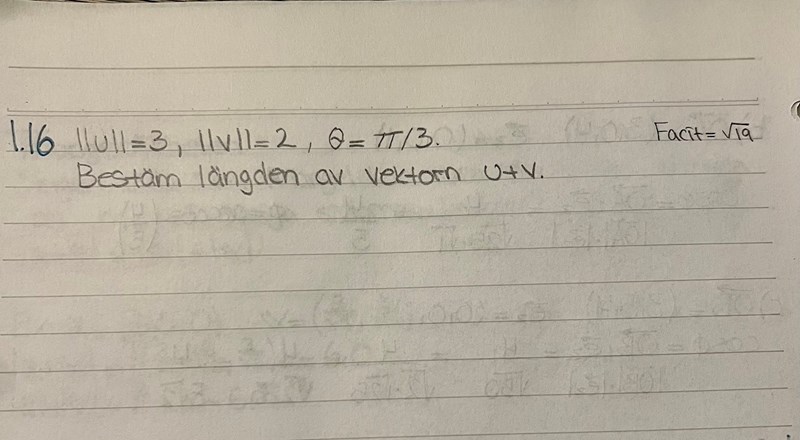 1.16 ||u||=3, ||v||=2, θ=π/3. Facit=√19
Bestäm längden av vektorn u+v.